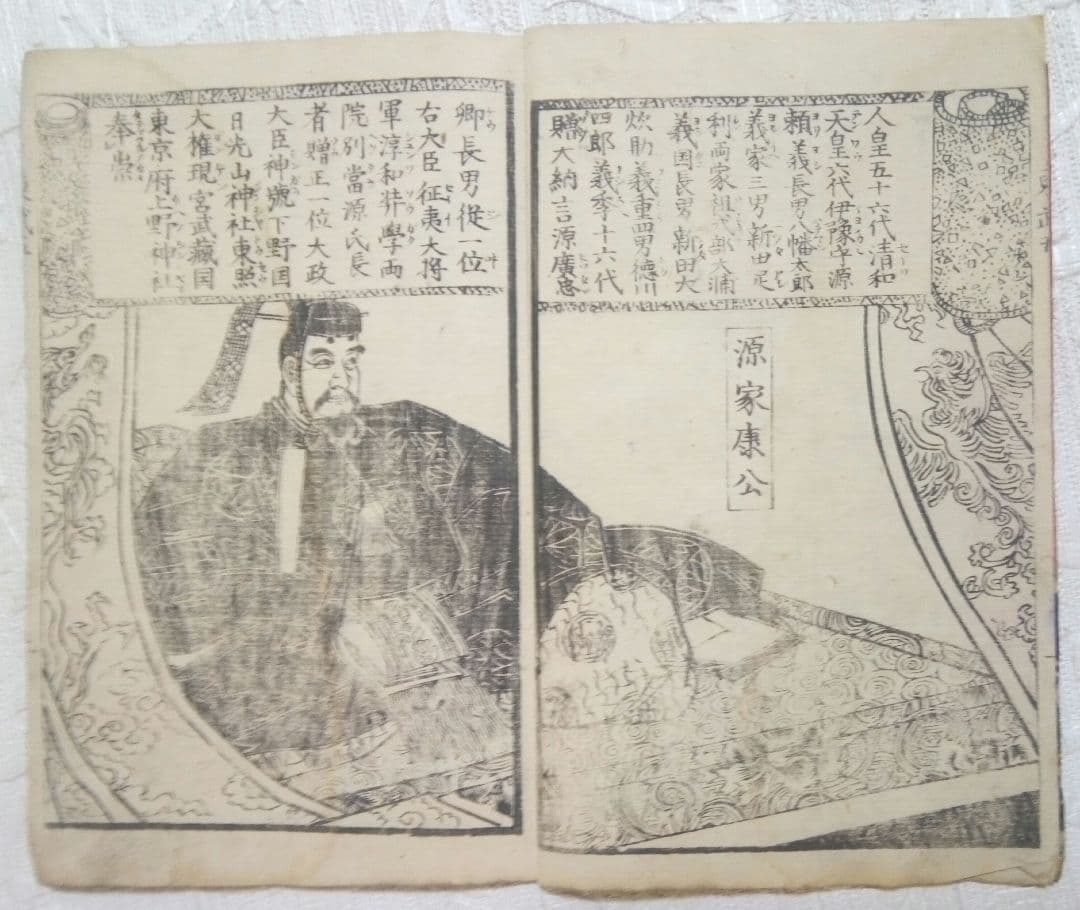 人皇五十六代清和
天皇六代伊豫守源
頼義長男八幡太郎
義家三男新田足
利両家祖式部大浦
義国長男新田大
炊助義重四男徳川
四郎義季十六代
贈大納言源廣忠
卿長男従一位
右大臣征夷大将
軍淳和弉學両
院別當源氏長
者贈正一位大政
大臣神號下野国
日光山神社東照
大権現宮武藏国
東京府上野神社
奉崇
源家康公